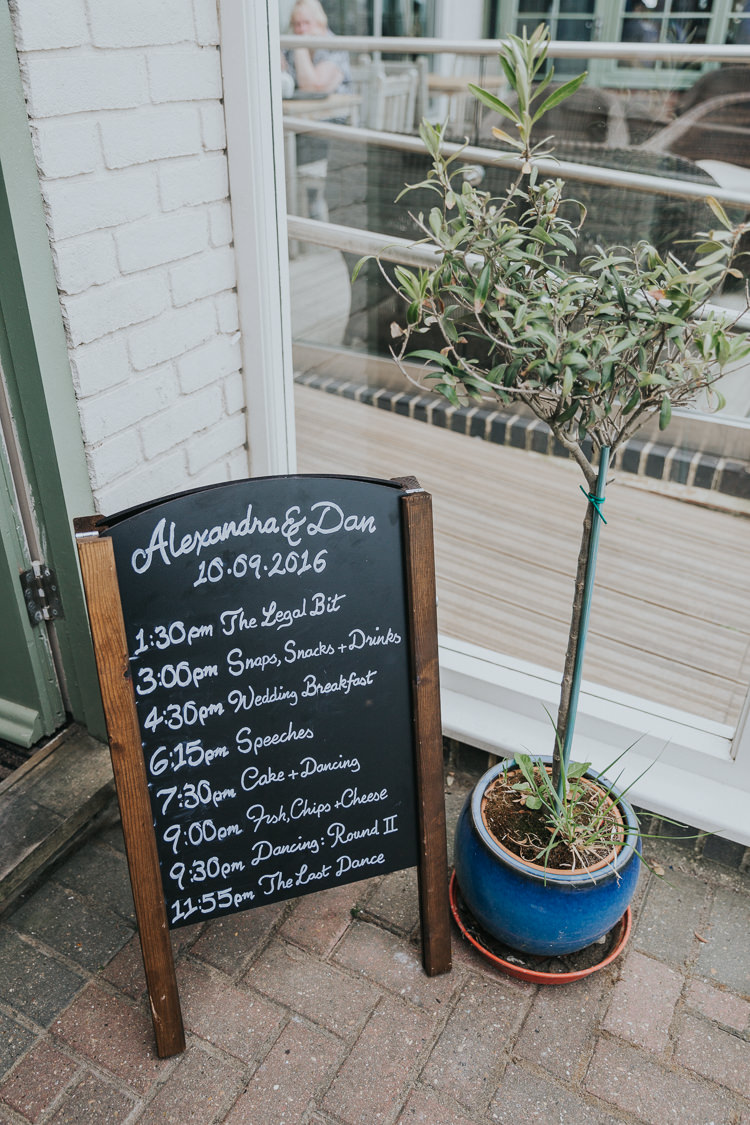 Alexandra & Dan
10.09.2016
1:30pm The Legal Bit
3:00pm Snaps, Snacks + Drinks
4:30pm Wedding Breakfast
6:15pm Speeches
7:30pm Cake + Dancing
9:00pm Fish, Chips + Cheese
9:30pm Dancing: Round II
11:55pm The Last Dance